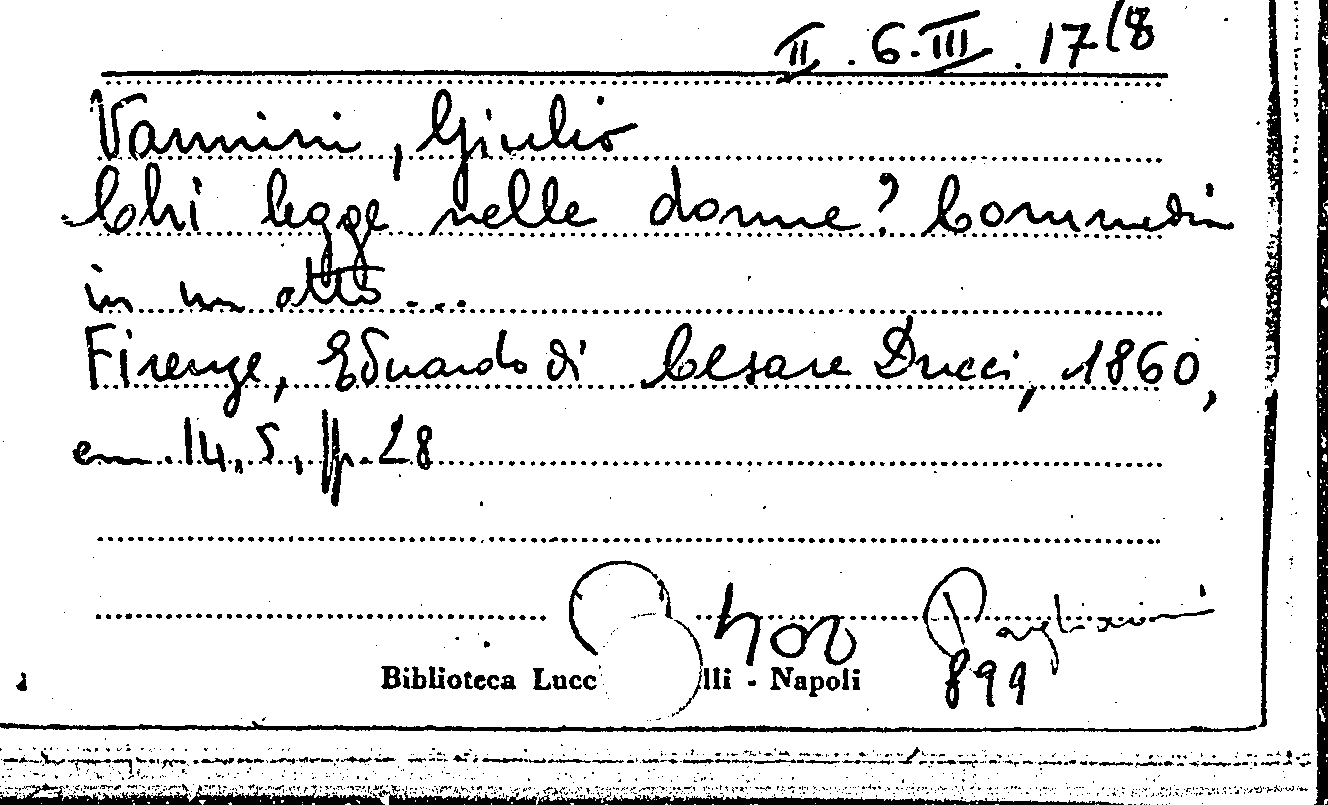 II . 6.III . 17(8
Vannini, Giulio
Chi legge nelle donne? Commedia
in un atto...
Firenze, Eduardo di Cesare Ducci, 1860,
cm.14,5, pp.28
Pagliaini
899
Biblioteca Lucc lli - Napoli